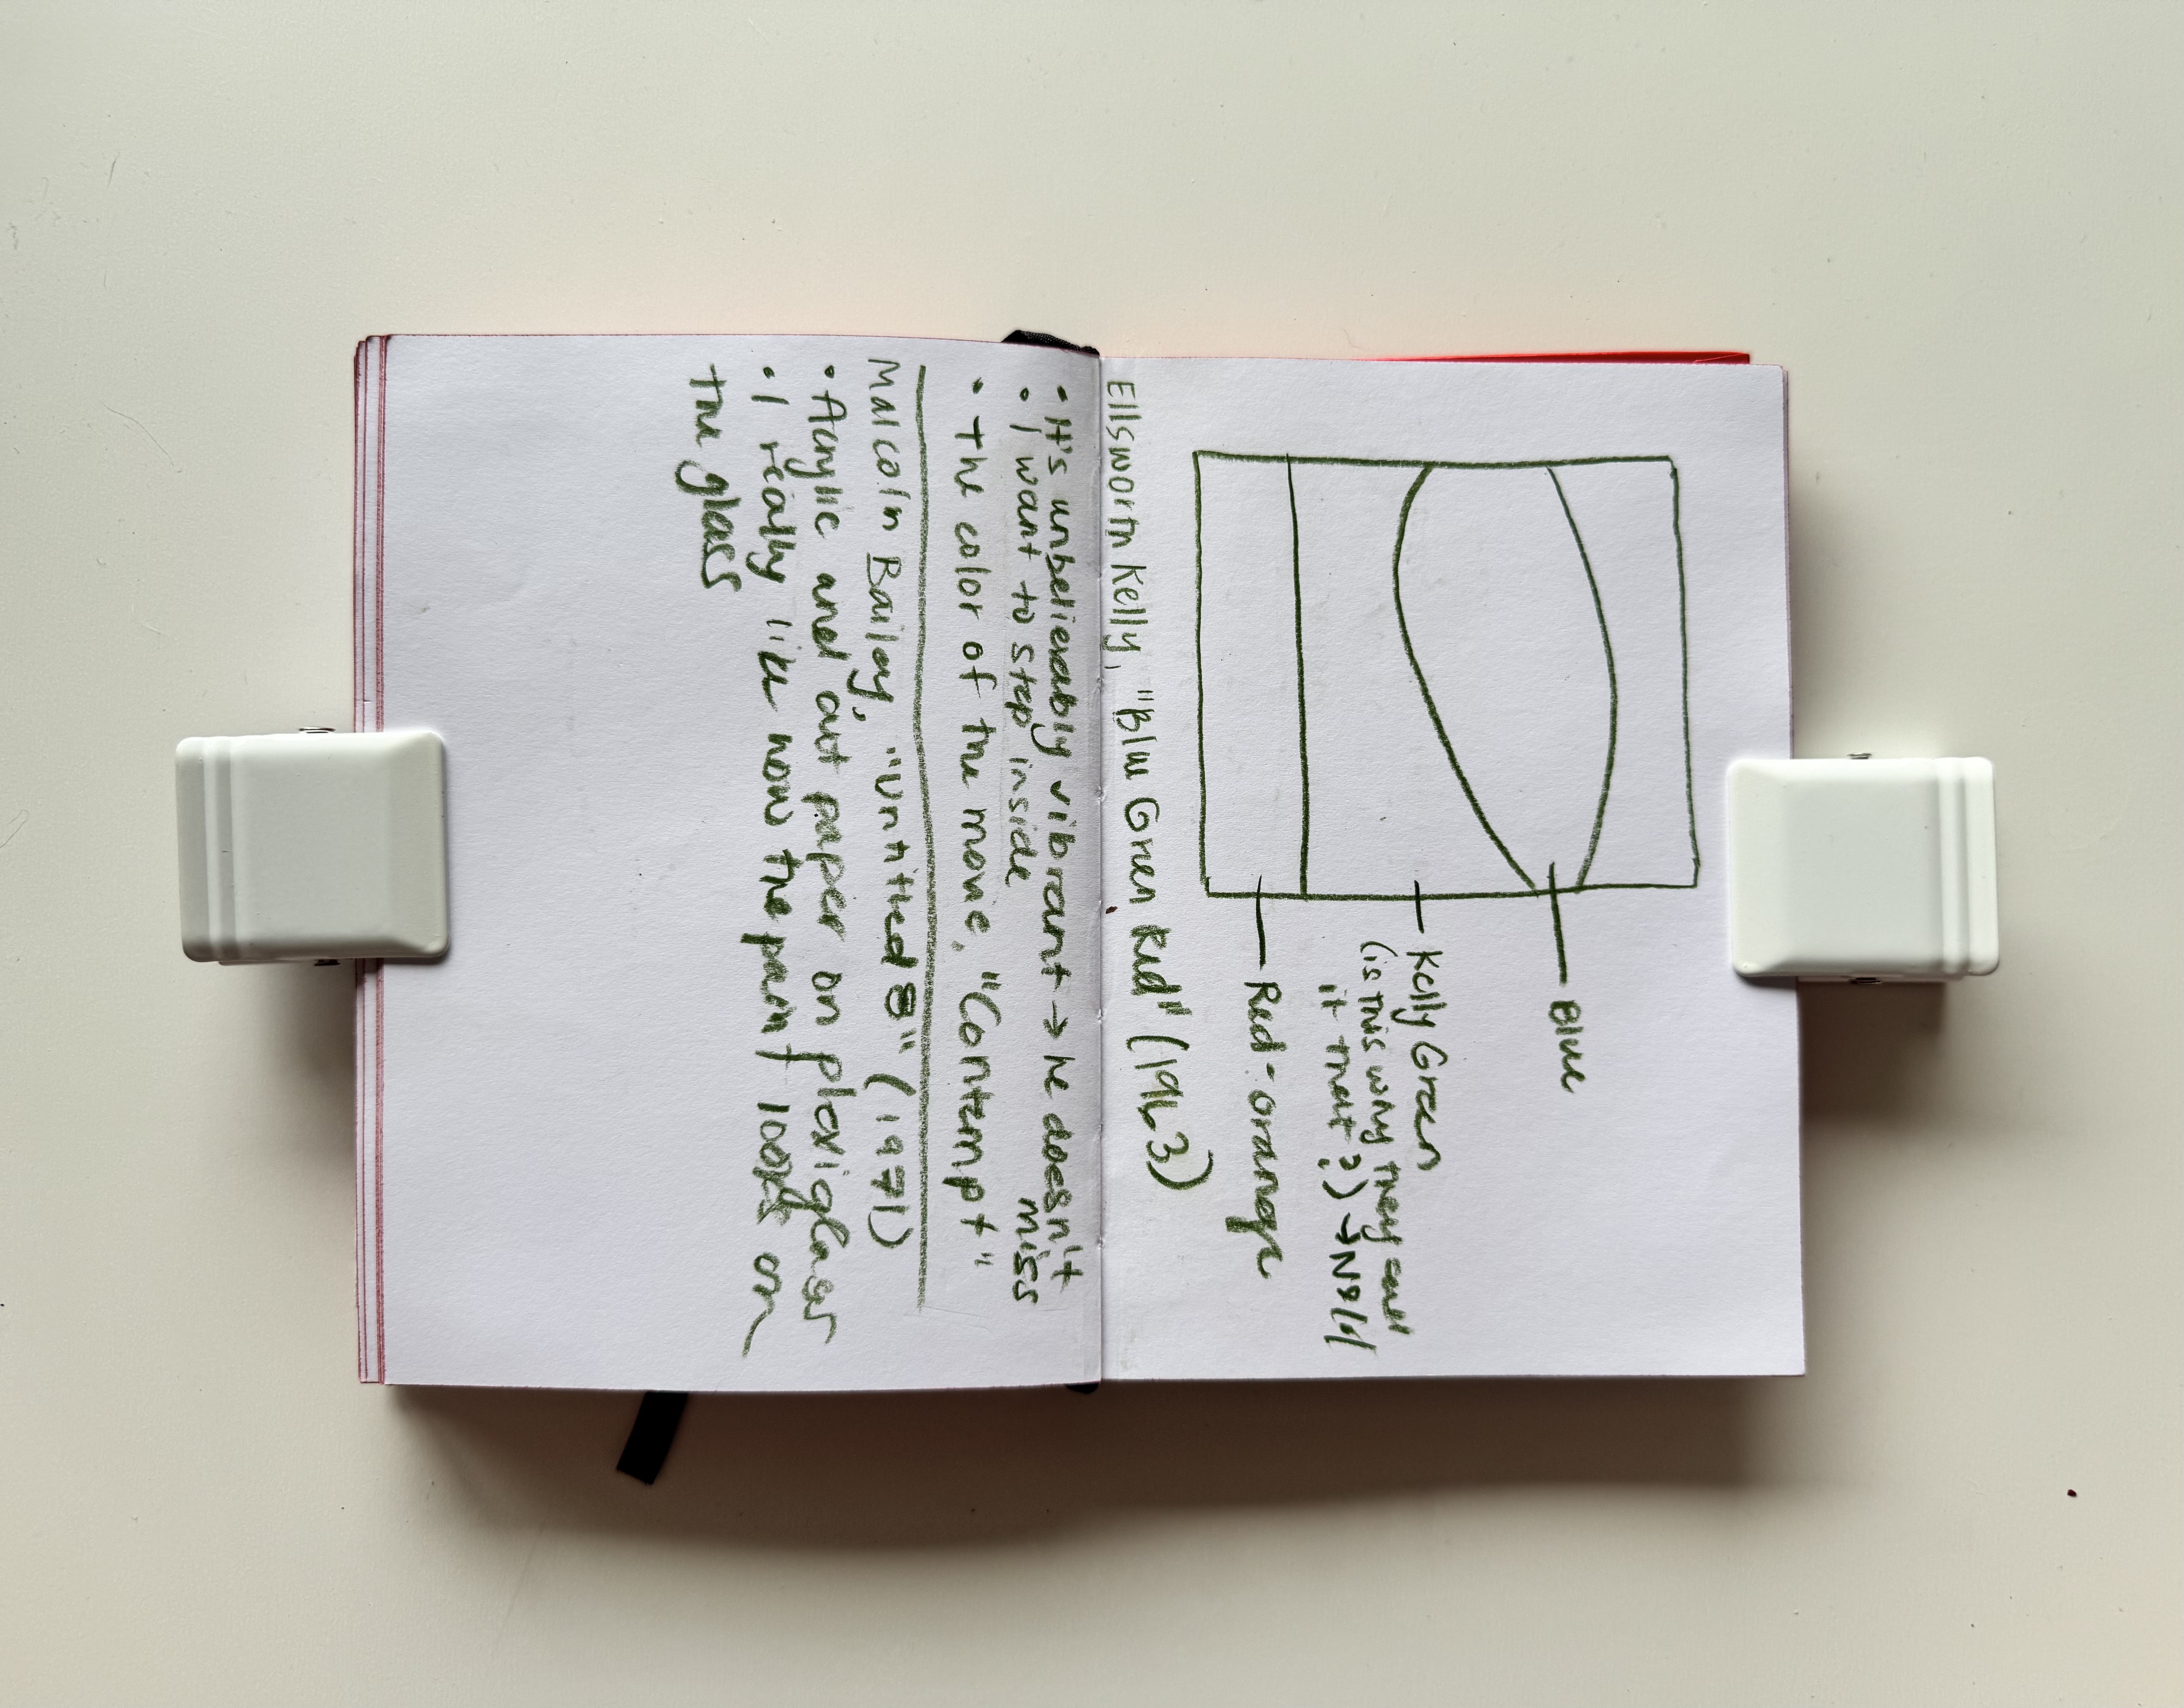 Blue
Kelly Green
(is this why they call
it that?) → No/4
Red-orange
Ellsworth Kelly, "Blue Green Red" (1963)
• It's unbelievably vibrant → he doesn't
miss
• I want to step inside
• The color of the movie, "Contempt"
Malcolm Bailey, "Untitled 8" (1971)
• Acrylic and cut paper on plexiglass
• I really like how the paint looks on
the glass